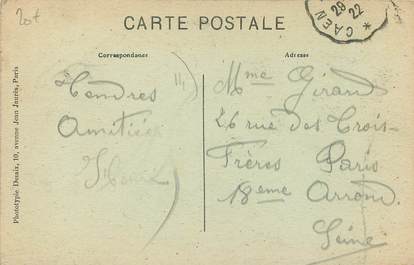 20t
CARTE POSTALE
CAEN
29
22
Correspondance
Adresse
Tendres
Amitiés
Mme Girard
26 rue des Trois-
Frères Paris
18eme Arrond.
Seine
Phototypie Desaix, 10, avenue Jean Jaurès, Paris